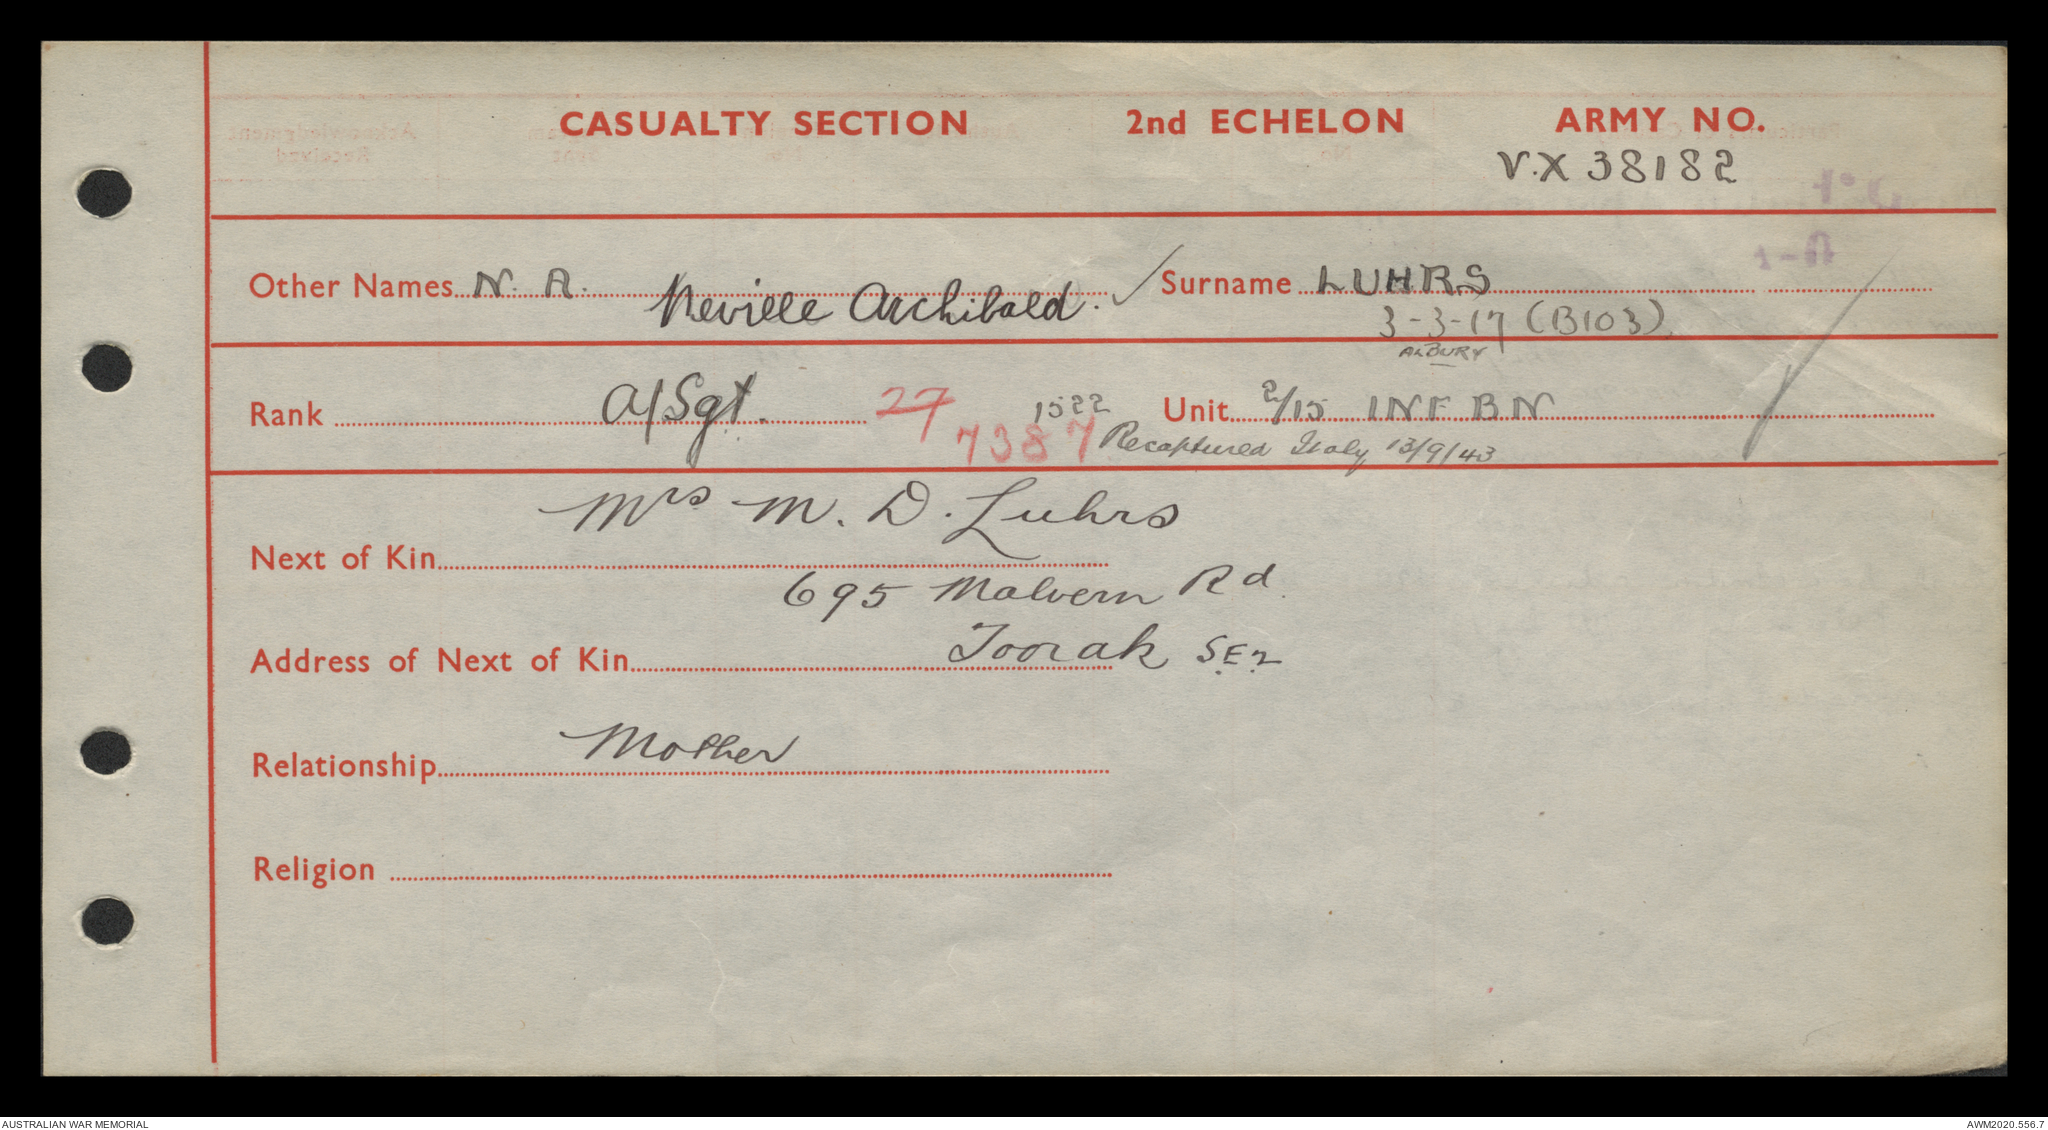 CASUALTY SECTION 2nd ECHELON ARMY NO.
V.X 38182
Other Names N. A. Neville Archibald. Surname LUHRS
3-3-17 (B103)
ALBURY
Rank A/Sgt. 27 1522 Unit 2/15 INF BN
7387 Recaptured Italy 13/9/43
Mrs M. D. Luhrs
Next of Kin
695 Malvern Rd.
Address of Next of Kin Toorak S.E.2
Mother
Relationship
Religion
AUSTRALIAN WAR MEMORIAL AWM2020.556.7